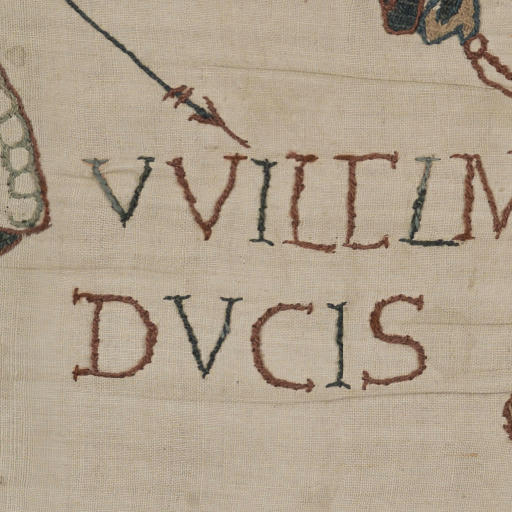 VVILELM
DVCIS